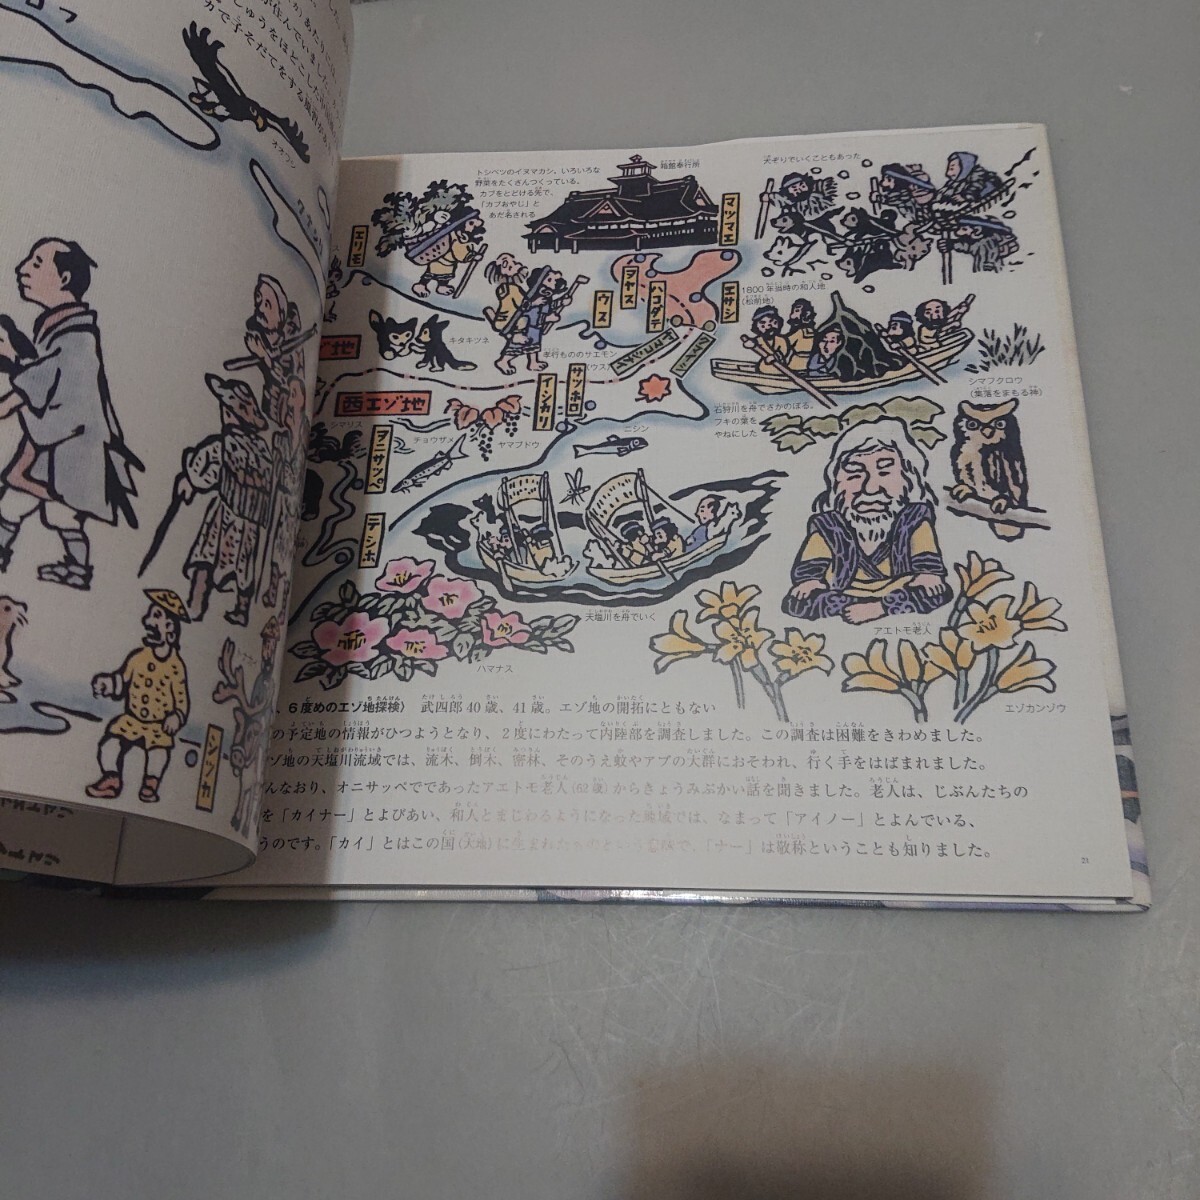 オオワシ
クナシリ
シツカ
トシベツのイヌマカシ。いろいろな
野菜をたくさんつくっている。
カブをとどける先で、
「カブおやじ」と
あだ名される
箱館奉行所
犬ぞりでいくこともあった
マツマエ
エリモ
ウス
ヲヤス
ハコダテ
エサシ
1800年当時の和人地
(松前地)
キタキツネ
孝行もののサエモン
(ウス)
地
西エゾ地
イシカリ
サツホロ
シマリス
チョウザメ
ヤマブドウ
ニシン
石狩川を舟でさかのぼる。
フキの葉を
やねにした
シマフクロウ
(集落をまもる神)
ヲニサツペ
テシホ
天塩川を舟でいく
ハマナス
アエトモ老人
エゾカンゾウ
、6度めのエゾ地探検〉 武四郎40歳、41歳。エゾ地の開拓にともない
の予定地の情報がひつようとなり、2度にわたって内陸部を調査しました。この調査は困難をきわめました。
ゾ地の天塩川流域では、流木、倒木、密林、そのうえ蚊やアブの大群におそわれ、行く手をはばまれました。
んなおり、オニサッペでであったアエトモ老人(62歳)からきょうみぶかい話を聞きました。老人は、じぶんたちの
を「カイナー」とよびあい、和人とまじわるようになった地域では、なまって「アイノー」とよんでいる、
うのです。「カイ」とはこの国(大地)に生まれたものという意味で、「ナー」は敬称ということも知りました。
21